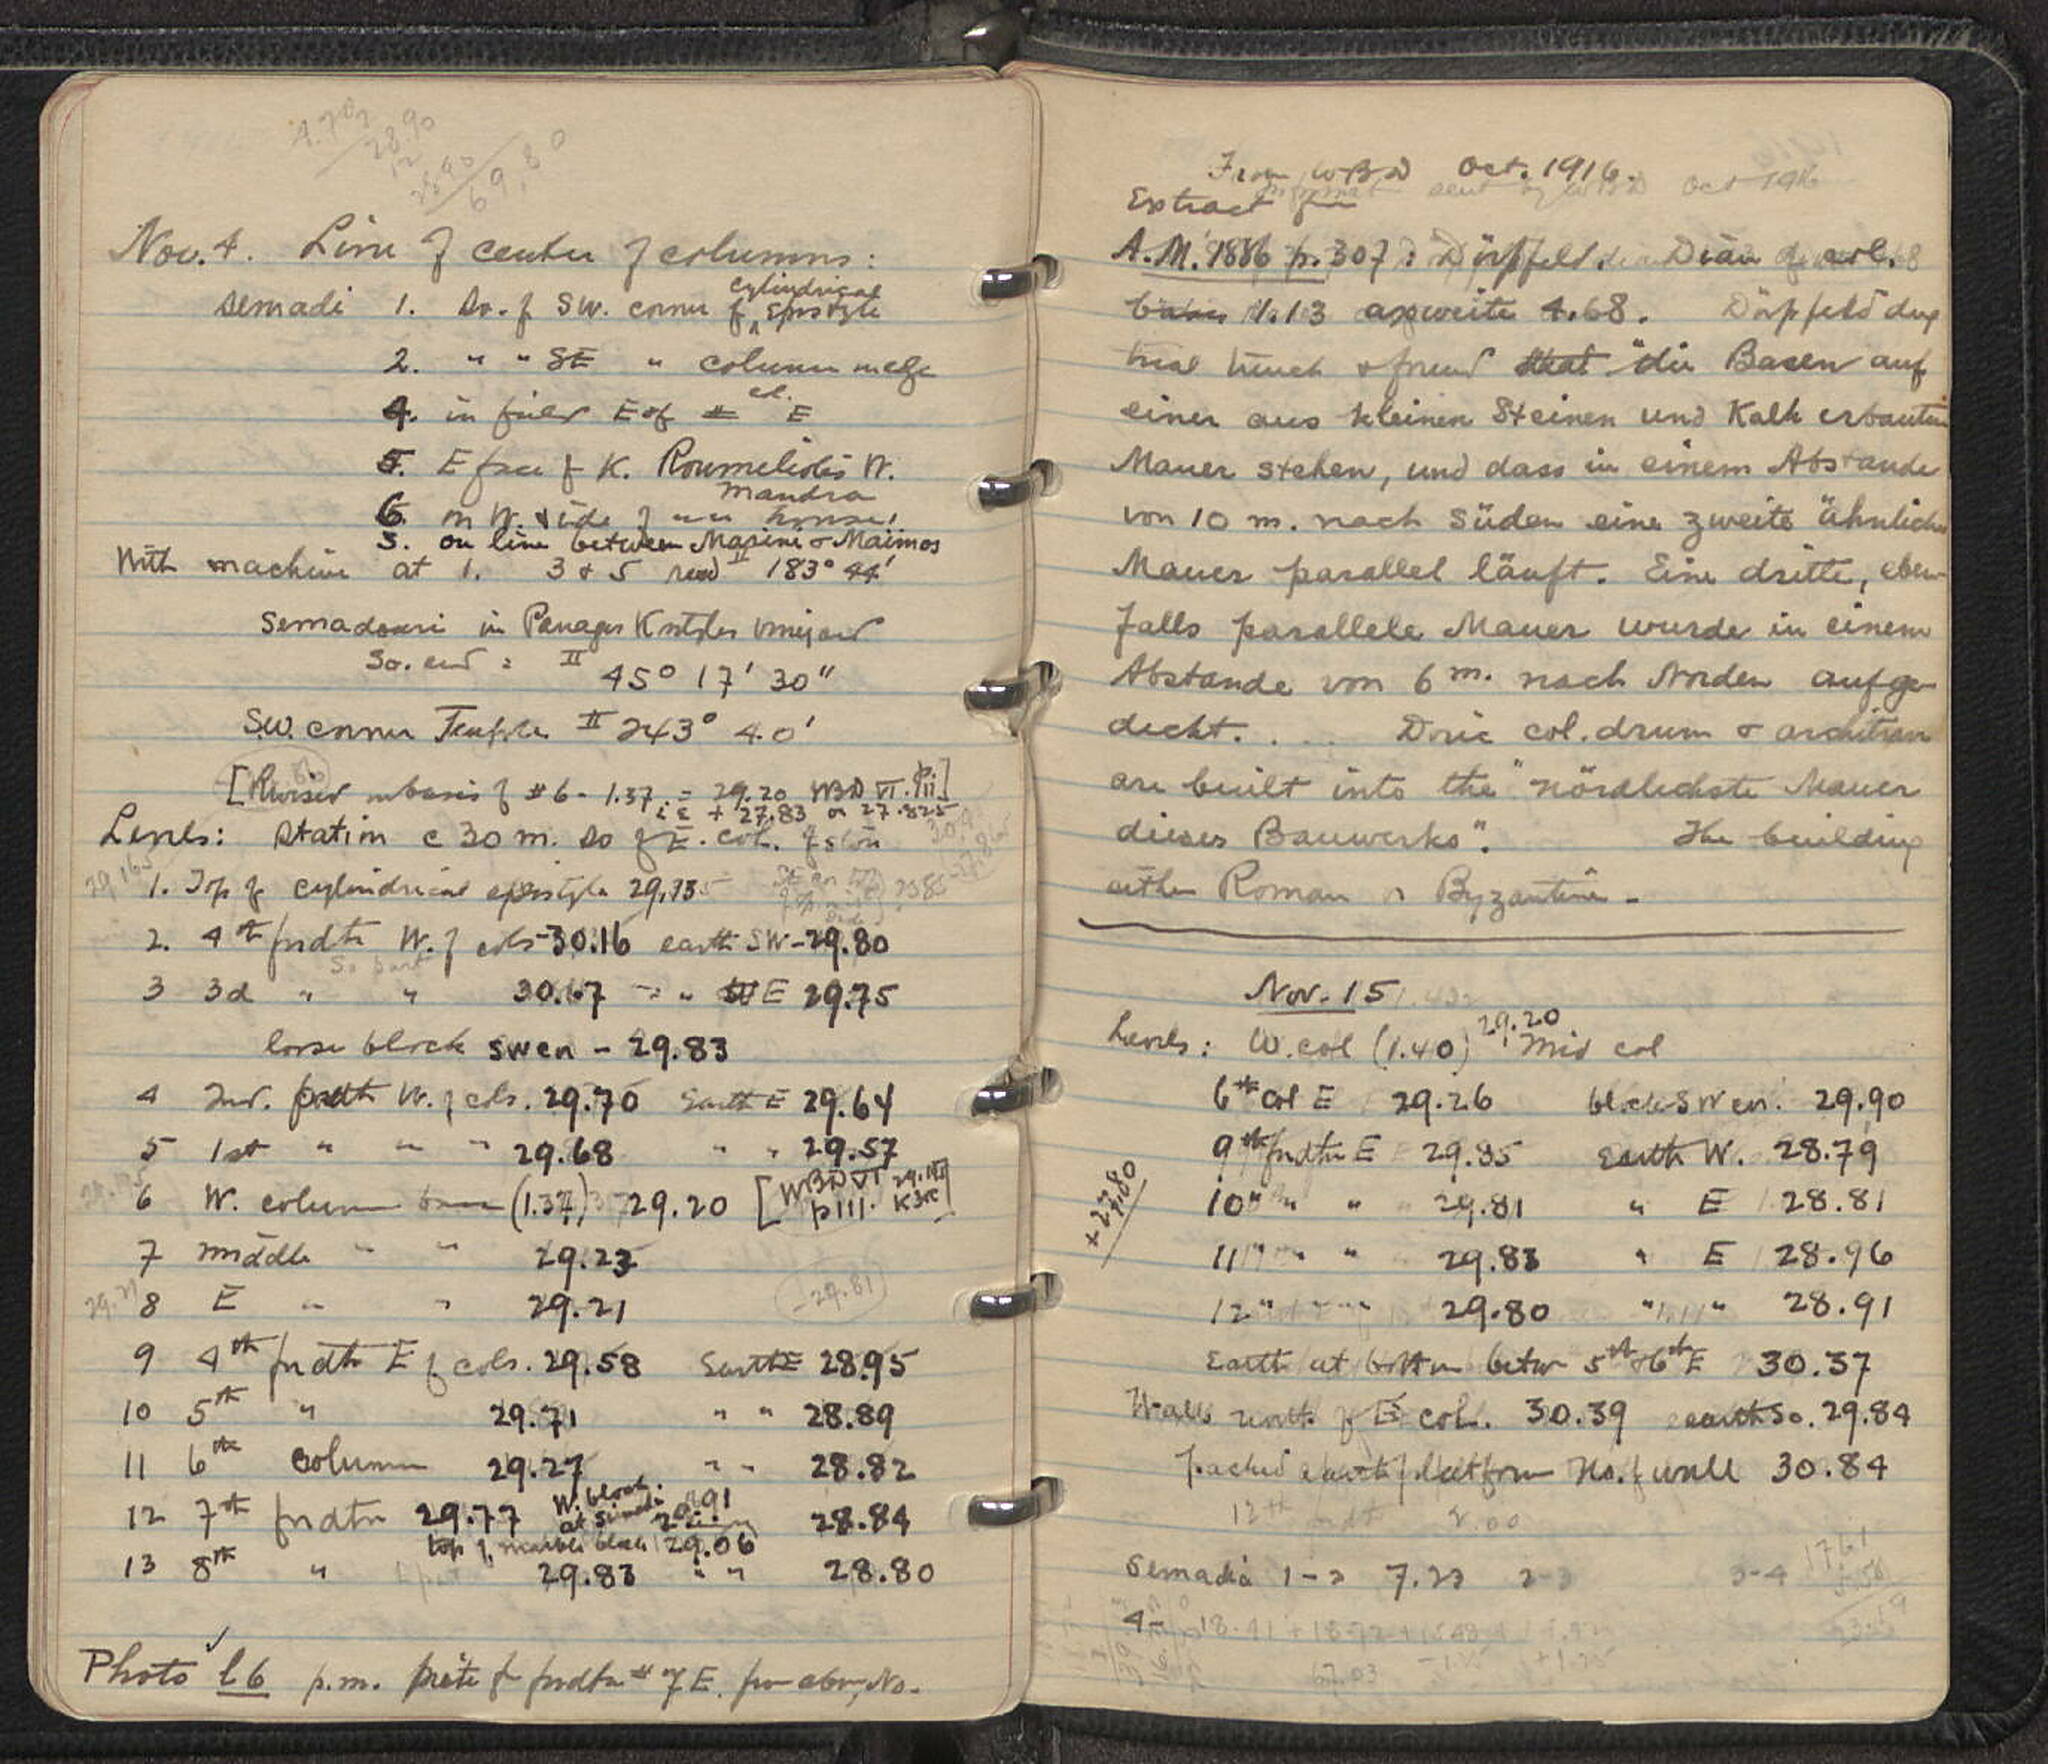 4.70
28.90
69,80
Nov. 4. Line of center of columns:
Semadi 1. So. of SW. corner of cylindrical Epistyle
2. " " SE " column
4. in field E of col. E
5. E face of K. Roumeliotis W.
6. on W. side of mandra
3. on line between Masini & Maimos
With machine at 1. 3 & 5 read II 183° 44'
Semadouri in Panages vineyard
So. end = II 45° 17' 30"
S.W. corner Temple II 243° 40'
[Revised on basis of #6 - 1.37 = 29.20 WBD VI. p.11]
i.e + 27.83 or 27.825
Levels: Station c 30 m. So of E. col. of stoa
29.165 1. Top of cylindrical epistyle 29.135
2. 4th fndtn W. of cols - 30.16 earth SW - 29.80
So part
3 3d " " 30.67 " E 29.75
loose block SW en - 29.83
4 2nd. fndtn W. of cols. 29.70 Earth E 29.64
5 1st " " " 29.68 " " 29.57
6 W. column base (1.37) 29.20 [WBD VI p 111.
7 Middle " " 29.23
29.21 8 E " " 29.21 -29.81
9 4th fndtn E of cols. 29.58 Earth E 28.95
10 5th " 29.71 " " 28.89
11 6th column 29.27 " " 28.82
12 7th fndtn 29.77 W. block. 28.84
top of marble block 29.06
13 8th " 29.83 " " 28.80
Photo L6 p.m. fndtn # of E. from above, No.
From WBD Oct. 1916.
sent by WBD Oct 1916
Extract
A.M. 1886 p. 307: Dörpfeld. Diam of col.
1.13 axweite 4.68. Dörpfeld dug
trial trench & found that "die Basen auf
einer aus kleinen Steinen und Kalk erbauten
Mauer stehen, und dass in einem Abstande
von 10 m. nach Süden eine zweite ähnliche
Mauer parallel läuft. Eine dritte, eben-
falls parallele Mauer wurde in einem
Abstande von 6 m. nach Norden aufge-
deckt. . . . Doric col. drum & architrave
are built into the "nördlichste Mauer
dieses Bauwerks". The building
either Roman or Byzantine -
Nov. 15
Levels: W. col (1.40) 29.20 Mid col
6th col E 29.26 block SW en. 29.90
9th fndtn E 29.85 Earth W. 28.79
+ 27.80
10" " " 29.81 " E 28.81
11" " " 29.83 " E 28.96
12" " " 29.80 " " 28.91
Earth at bottom betw 5th & 6th E 30.37
Walls north of E col. 30.39 earth So. 29.84
packed earth platform No. of wall 30.84
12th fndt 2.00
Semadia 1-2 7.23 2-3 3-4
1761
4- 18.41 + 18.72 +
67.03